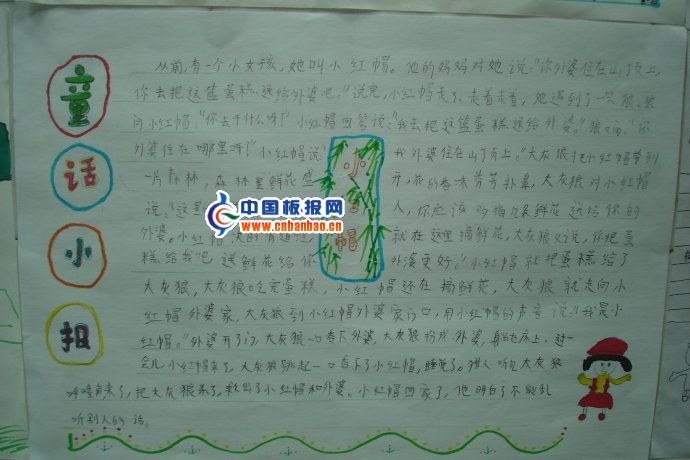 童话小报
小红帽
从前,有一个小女孩,她叫小红帽。他的妈妈对她说:"你外婆住在山顶上,
你去把这篮蛋糕送给外婆吧。"说完,小红帽走了。走着走着,她遇到了一只狼。狼
问小红帽:"你去干什么呀?"小红帽回答说:"我去把这篮蛋糕送给外婆。"狼又说:"你
外婆住在哪里呀?"小红帽说:"我外婆住在山顶上。"大灰狼把小红帽带到
一片森林,森林里鲜花盛开,花的香味芳芳扑鼻,大灰狼对小红帽
说:"这里 人,你应该多摘几朵鲜花送给你的
外婆。小红帽 的有道理 就在这里摘鲜花,大灰狼又说,你把蛋
糕给我吧,送鲜花给你外婆更好。"小红帽就把蛋糕给了
大灰狼,大灰狼吃完蛋糕,小红帽还在摘鲜花,大灰狼就走向小
红帽外婆家,大灰狼到小红帽外婆家门口,用小红帽的声音说:"我是小
红帽。"外婆开了门,大灰狼一口吞下外婆,大灰狼扮成外婆,躺在床上。过一
会儿小红帽来了,大灰狼跳起一口吞下了小红帽,睡觉了。猎人听见大灰狼
来了,把大灰狼杀了,救出了小红帽和外婆。小红帽回家了,他明白了不能乱
听别人的话。
中国板报网
www.cnbanbao.cn